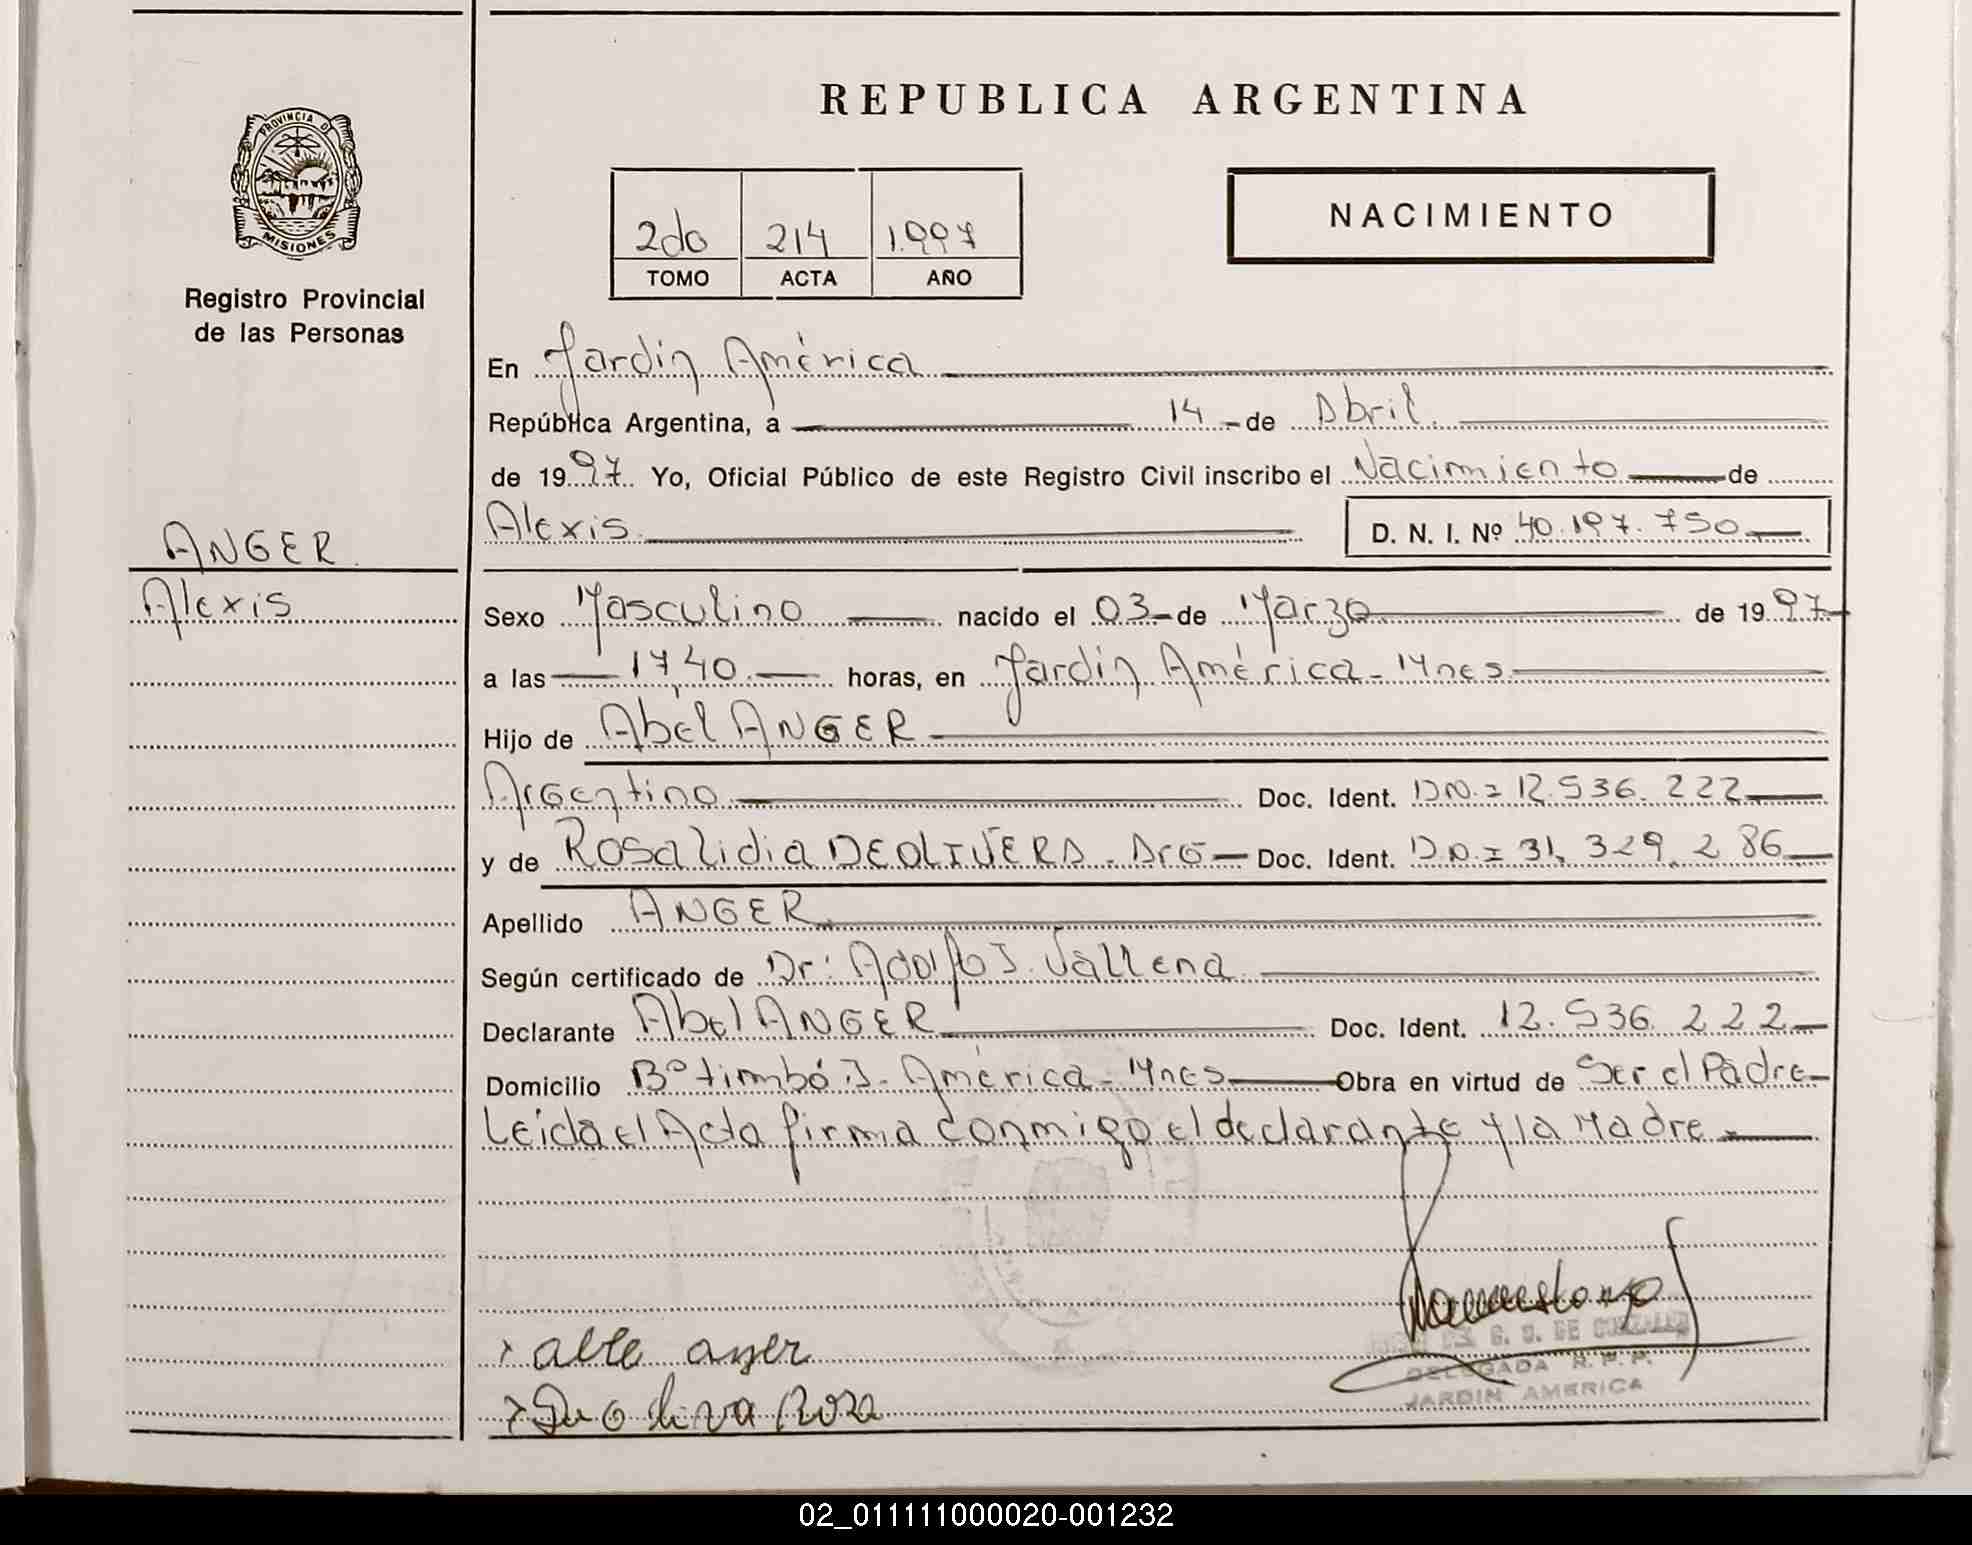 REPUBLICA ARGENTINA
PROVINCIA D
MISIONES
Registro Provincial
de las Personas
2do 214 1.997
TOMO ACTA AÑO
NACIMIENTO
En Jardín América
República Argentina, a 14 de Abril
de 1997 Yo, Oficial Público de este Registro Civil inscribo el Nacimiento de
Alexis D. N. I. Nº 40.197.750
ANGER
Alexis
Sexo Masculino nacido el 03 de Marzo de 1997
a las 17,40 horas, en Jardín América - Mnes
Hijo de Abel ANGER
Argentino Doc. Ident. DN.= 12.536.222
y de Rosalidia DEOLIVERA. Arg Doc. Ident. D.N.= 31.329.286
Apellido ANGER
Según certificado de Dr: Adolfo J. Vallena
Declarante Abel ANGER Doc. Ident. 12.536.222
Domicilio Bº timbó J. América - Mnes Obra en virtud de Ser el Padre
Leída el Acta firma conmigo el declarante y la Madre
DE
DELEGADA R. P. P.
JARDIN AMERICA
02_011111000020-001232